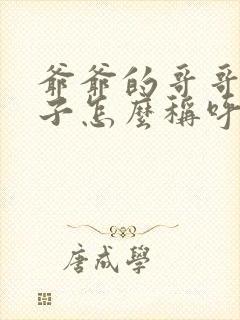 爺爺的哥哥
子怎麼稱呼
唐咸學